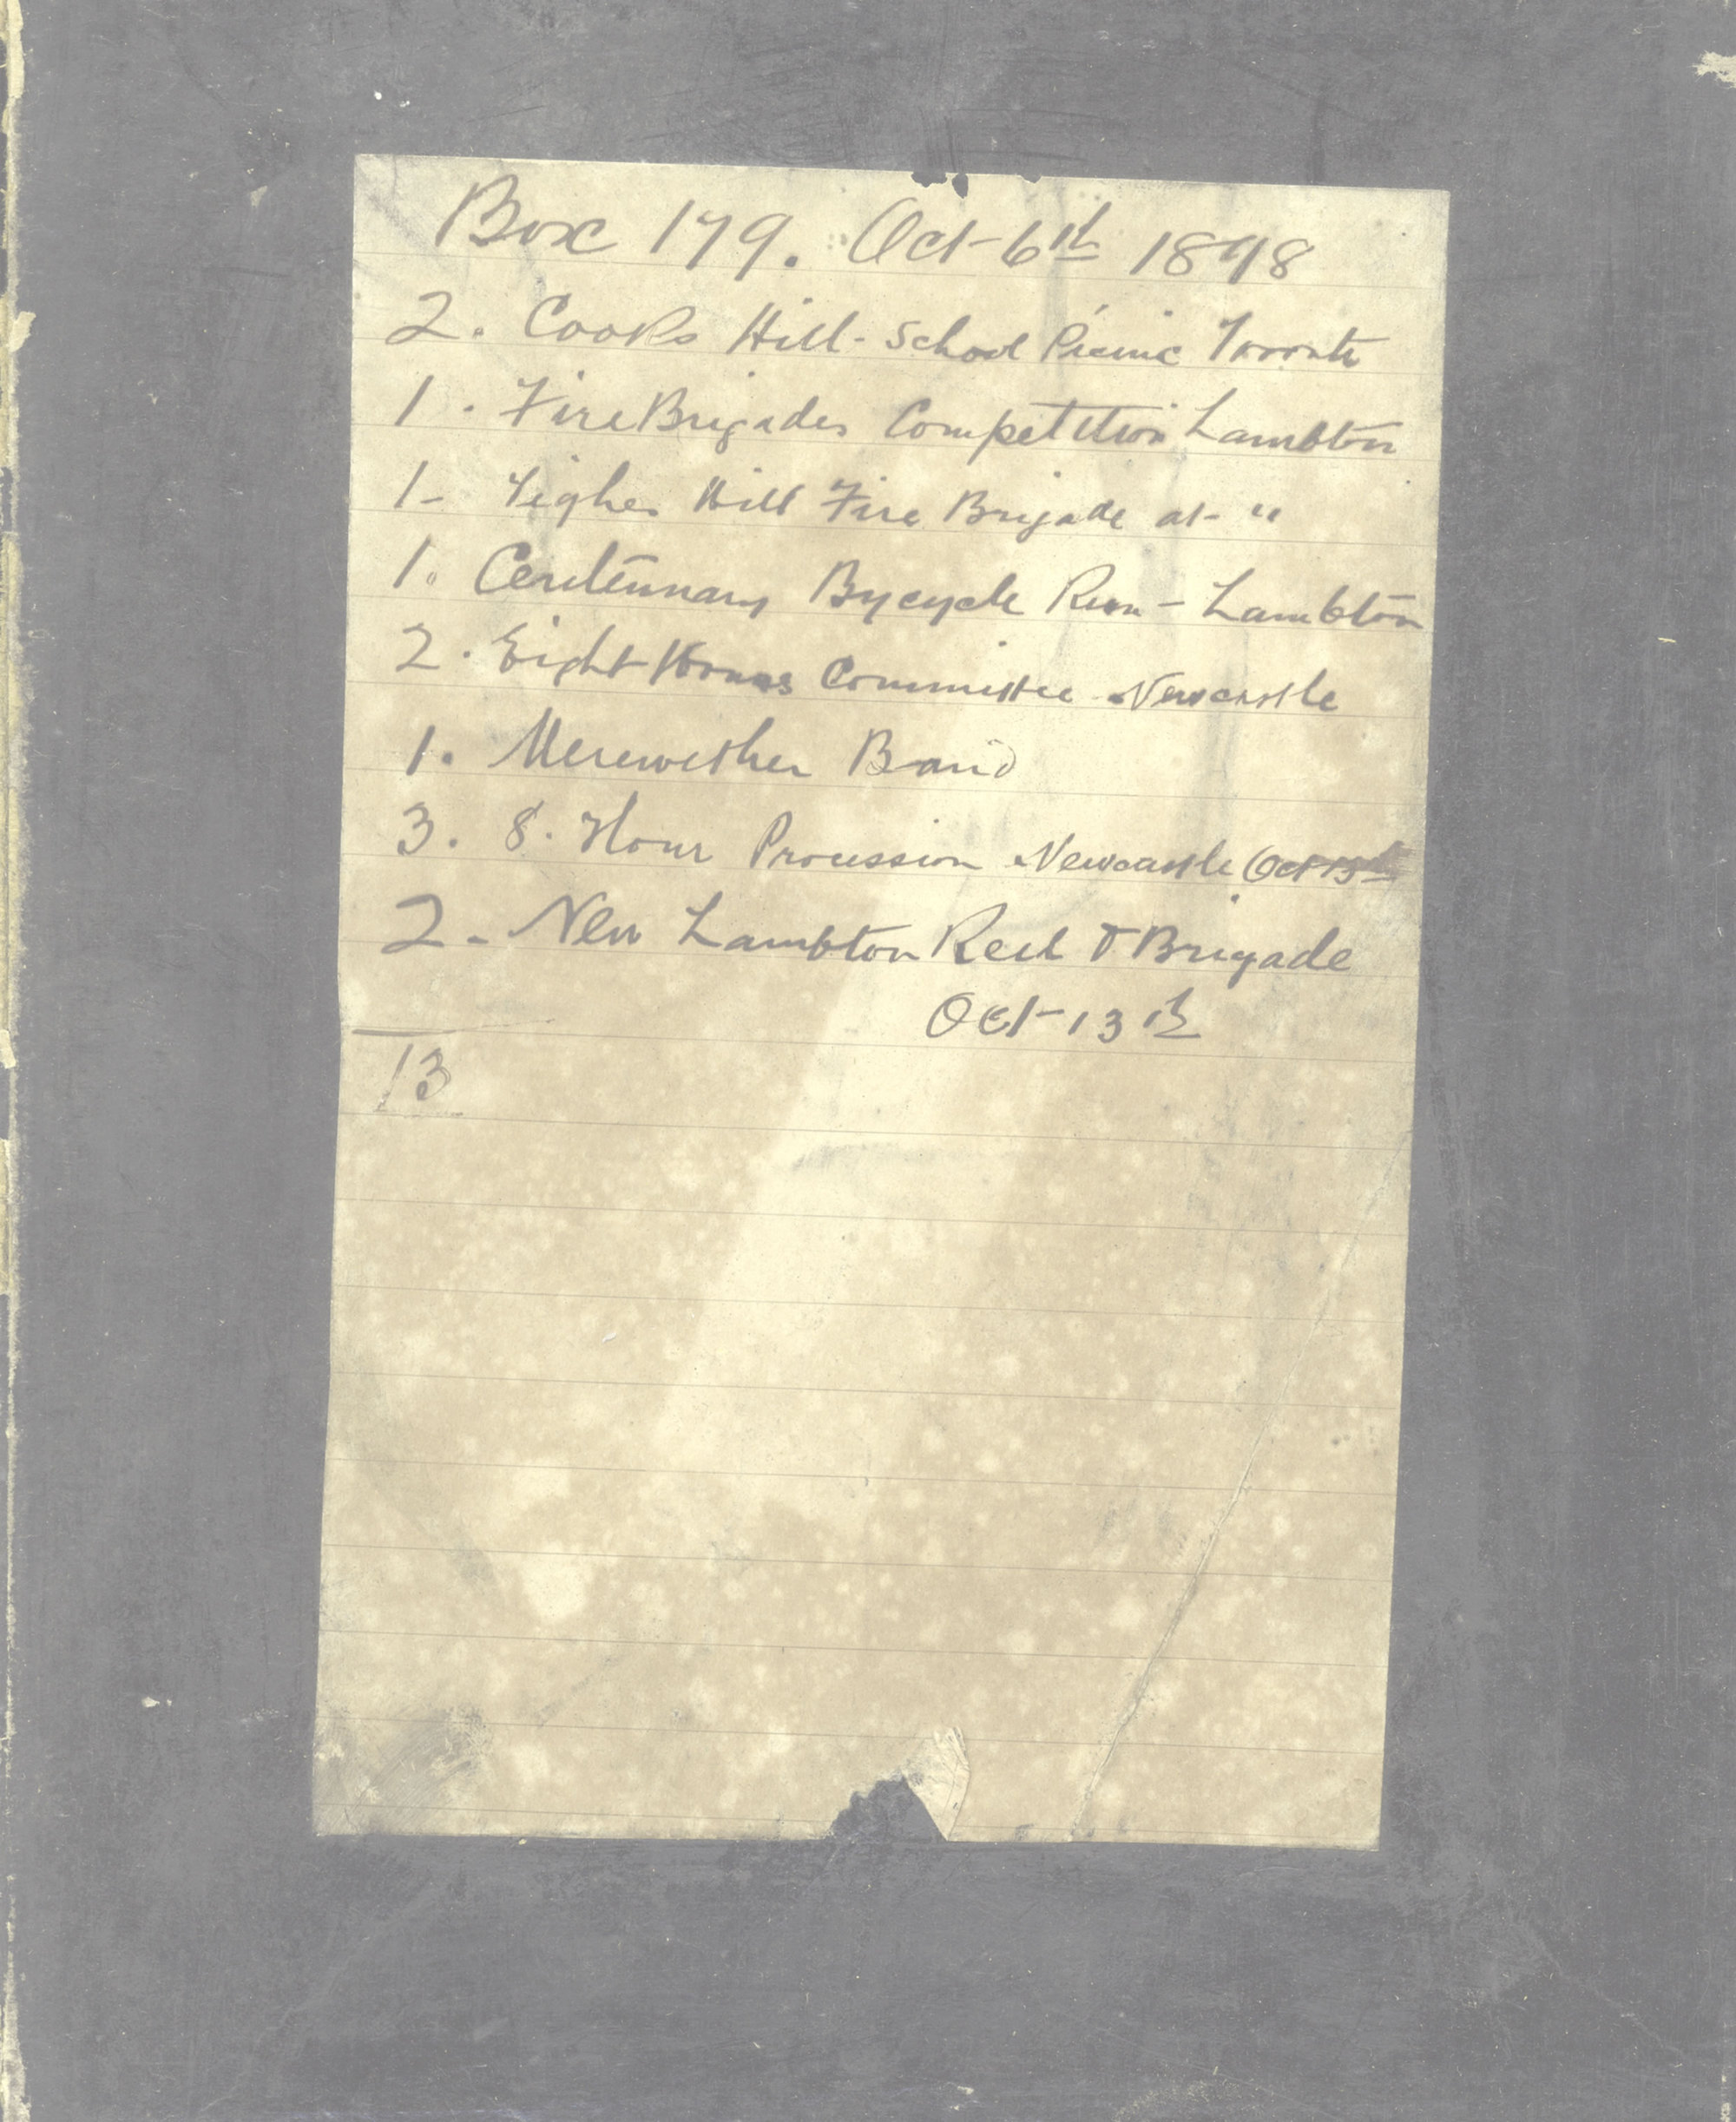 Box 179. Oct 6th 1898
2. Cooks Hill - School Picnic Toronto
1. Fire Brigades Competition Lambton
1 - Tighes Hill Fire Brigade at - "
1. Centennary Bycycle Run - Lambton
2. Eight Hours Committee - Newcastle
1. Merewether Band
3. 8. Hour Procession Newcastle Oct 13th
2 - New Lambton Reel & Brigade
Oct 13th
13